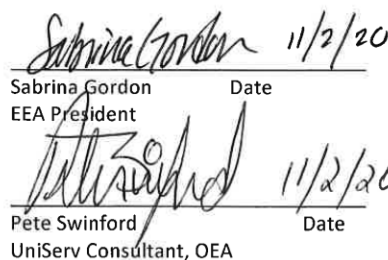 Sabrina Gordon 11/2/20
Sabrina Gordon Date
EEA President
11/2/20
Pete Swinford Date
UniServ Consultant, OEA